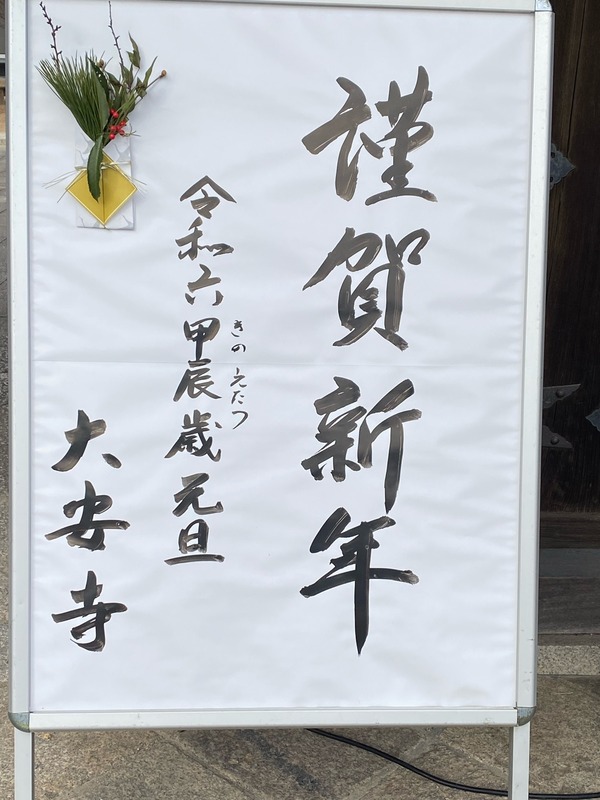 謹賀新年
きのえたつ
令和六甲辰歳元旦
大安寺